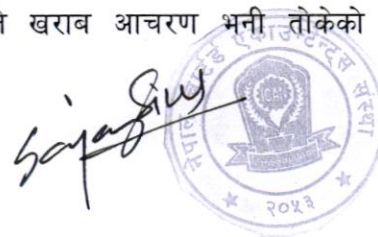 खराब आचरण भनी तोकेको
नेपाल चार्टर्ड एकाउन्टेन्ट्स संस्था
ICAN
२०५३